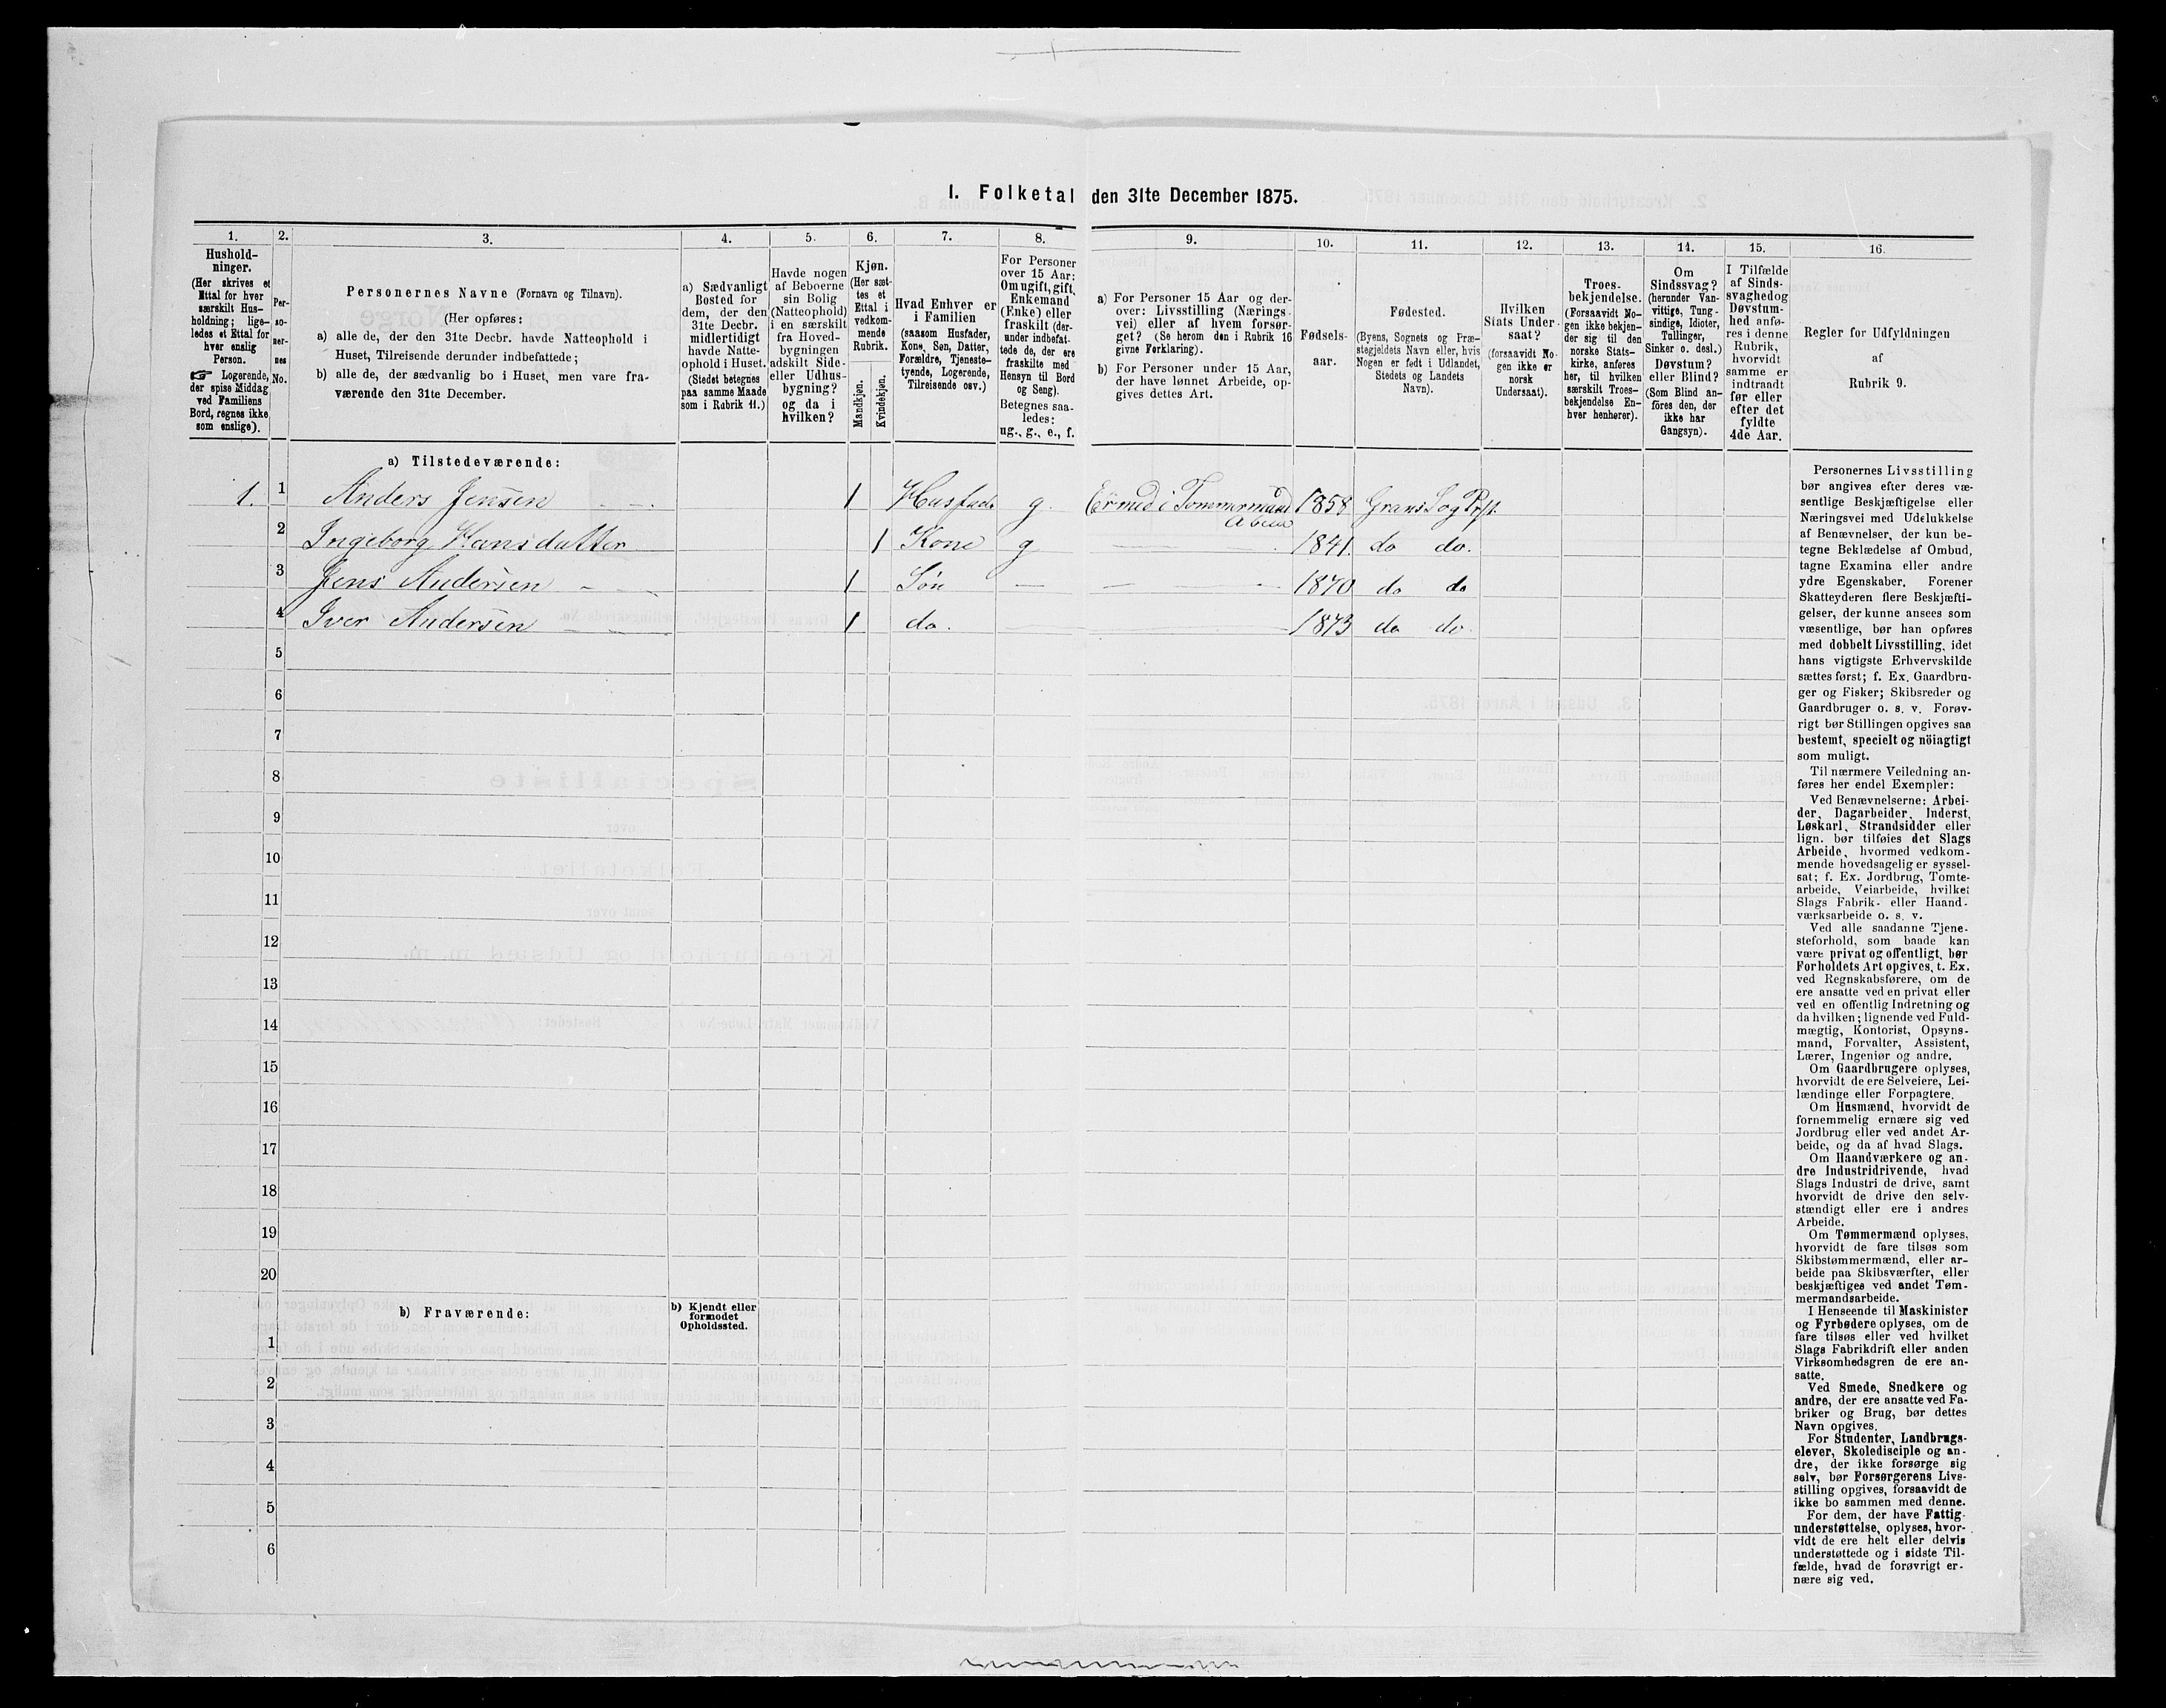 I. Folketal den 31te December 1875.
1.
Hushold-
ninger.
(Her skrives et
Ettal for hver
særskilt Hus-
holdning; lige-
ledes et Ettal for
hver enslig
Person.
☞ Logerende,
der spise Middag
ved Familiens
Bord, regnes ikke
som enslige).
2.
Per-
so-
ner-
nes
No.
3.
Personernes Navne (Fornavn og Tilnavn).
(Her opføres:
a) alle de, der den 31te Decbr. havde Natteophold i
Huset, Tilreisende derunder indbefattede;
b) alle de, der sædvanlig bo i Huset, men vare fra-
værende den 31te December.
4.
a) Sædvanligt
Bosted for
dem, der den
31te Decbr.
midlertidigt
havde Natte-
ophold i Huset.
(Stedet betegnes
paa samme Maade
som i Rubrik 11.)
5.
Havde nogen
af Beboerne
sin Bolig
(Natteophold)
i en særskilt
fra Hoved-
bygningen
adskilt Side-
eller Udhus-
bygning?
og da i
hvilken?
6.
Kjøn.
(Her sæt-
tes et
Ettal i
vedkom-
mende
Rubrik.
Mandkjøn.
Kvindekjøn.
7.
Hvad Enhver er
i Familien
(saasom Husfader,
Kone, Søn, Datter,
Forældre, Tjeneste-
tyende, Logerende,
Tilreisende osv.)
8.
For Personer
over 15 Aar:
Om ugift, gift,
Enkemand
(Enke) eller
fraskilt (der-
under indbefat-
tede de, der ere
fraskilte med
Hensyn til Bord
og Seng).
Betegnes saa-
ledes:
ug., g., e., f.
9.
a) For Personer 15 Aar og der-
over: Livsstilling (Nærings-
vei) eller af hvem forsør-
get? (Se herom den i Rubrik 16
givne Forklaring).
b) For Personer under 15 Aar,
der have lønnet Arbeide, op-
gives dettes Art.
10.
Fødsels-
aar.
11.
Fødested.
(Byens, Sognets og Præ-
stegjeldets Navn eller, hvis
Nogen er født i Udlandet,
Stedets og Landets
Navn).
12.
Hvilken
Stats Under-
saat?
(forsaavidt No-
gen ikke er
norsk
Undersaat).
13.
Troes-
bekjendelse.
(Forsaavidt No-
gen ikke bekjen-
der sig til den
norske Stats-
kirke, anføres
her, til hvilken
særskilt Troes-
bekjendelse En-
hver henhører).
14.
Om
Sindssvag?
(herunder Van-
vittige, Tung-
sindige, Idioter,
Tullinger,
Sinker o. desl.)
Døvstum?
eller Blind?
(Som Blind an-
føres den, der
ikke har
Gangsyn).
15.
I Tilfælde
af Sinds-
svaghed og
Døvstum-
hed anfø-
res i denne
Rubrik,
hvorvidt
samme er
indtraadt
før eller
efter det
fyldte
4de Aar.
16.
Regler for Udfyldningen
af
Rubrik 9.
a) Tilstedeværende:
1. 1 Anders Jensen 1 Husfader g. Tømmermand 1858 Grans Sog Prst.
2 Ingeborg Hansdatter 1 Kone g 1841. do do.
3 Jens Andersen 1 Søn 1870 do do
4 Iver Andersen 1 do. 1873 do do.
5
6
7
8
9
10
11
12
13
14
15
16
17
18
19
20
b) Fraværende:
b) Kjendt eller
formodet
Opholdssted.
1
2
3
4
5
6
Personernes Livsstilling
bør angives efter deres væ-
sentlige Beskjæftigelse eller
Næringsvei med Udelukkelse
af Benævnelser, der kun be-
tegne Beklædelse af Ombud,
tagne Examina eller andre
ydre Egenskaber. Forener
Skatteyderen flere Beskjæfti-
gelser, der kunne ansees som
væsentlige, bør han opføres
med dobbelt Livsstilling, idet
hans vigtigste Erhvervskilde
sættes først; f. Ex. Gaardbru-
ger og Fisker; Skibsreder og
Gaardbruger o. s. v. Forøv-
rigt bør Stillingen opgives saa
bestemt, specielt og nöiagtigt
som muligt.
Til nærmere Veiledning an-
føres her endel Exempler:
Ved Benævnelserne: Arbei-
der, Dagarbeider, Inderst,
Løskarl, Strandsidder eller
lign. bør tilføies det Slags
Arbeide, hvormed vedkom-
mende hovedsagelig er syssel-
sat; f. Ex. Jordbrug, Tomte-
arbeide, Veiarbeide, hvilket
Slags Fabrik- eller Haand-
værksarbeide o. s. v.
Ved alle saadanne Tjene-
steforhold, som baade kan
være privat og offentligt, bør
Forholdets Art opgives, t. Ex.
ved Regnskabsførere, om de
ere ansatte ved en privat eller
ved en offentlig Indretning og
da hvilken; lignende ved Fuld-
mægtig, Kontorist, Opsyns-
mand, Forvalter, Assistent,
Lærer, Ingeniør og andre.
Om Gaardbrugere oplyses,
hvorvidt de ere Selveiere, Lei-
lændinge eller Forpagtere.
Om Husmænd, hvorvidt de
fornemmelig ernære sig ved
Jordbrug eller ved andet Ar-
beide, og da af hvad Slags.
Om Haandværkere og an-
dre Industridrivende, hvad
Slags Industri de drive, samt
hvorvidt de drive den selv-
stændigt eller ere i andres
Arbeide.
Om Tømmermænd oplyses,
hvorvidt de fare tilsøs som
Skibstømmermænd, eller ar-
beide paa Skibsværfter, eller
beskjæftiges ved andet Tøm-
mermandsarbeide.
I Henseende til Maskinister
og Fyrbødere oplyses, om de
fare tilsøs eller ved hvilket
Slags Fabrikdrift eller anden
Virksomhedsgren de ere an-
satte.
Ved Smede, Snedkere og
andre, der ere ansatte ved Fa-
briker og Brug, bør dettes
Navn opgives.
For Studenter, Landbrugs-
elever, Skoledisciple og an-
dre, der ikke forsørge sig
selv, bør Forsørgerens Livs-
stilling opgives, forsaavidt de
ikke bo sammen med denne.
For dem, der have Fattig-
understøttelse, oplyses, hvor-
vidt de ere helt eller delvis
understøttede og i sidste Til-
fælde, hvad de forøvrigt er-
nære sig ved.